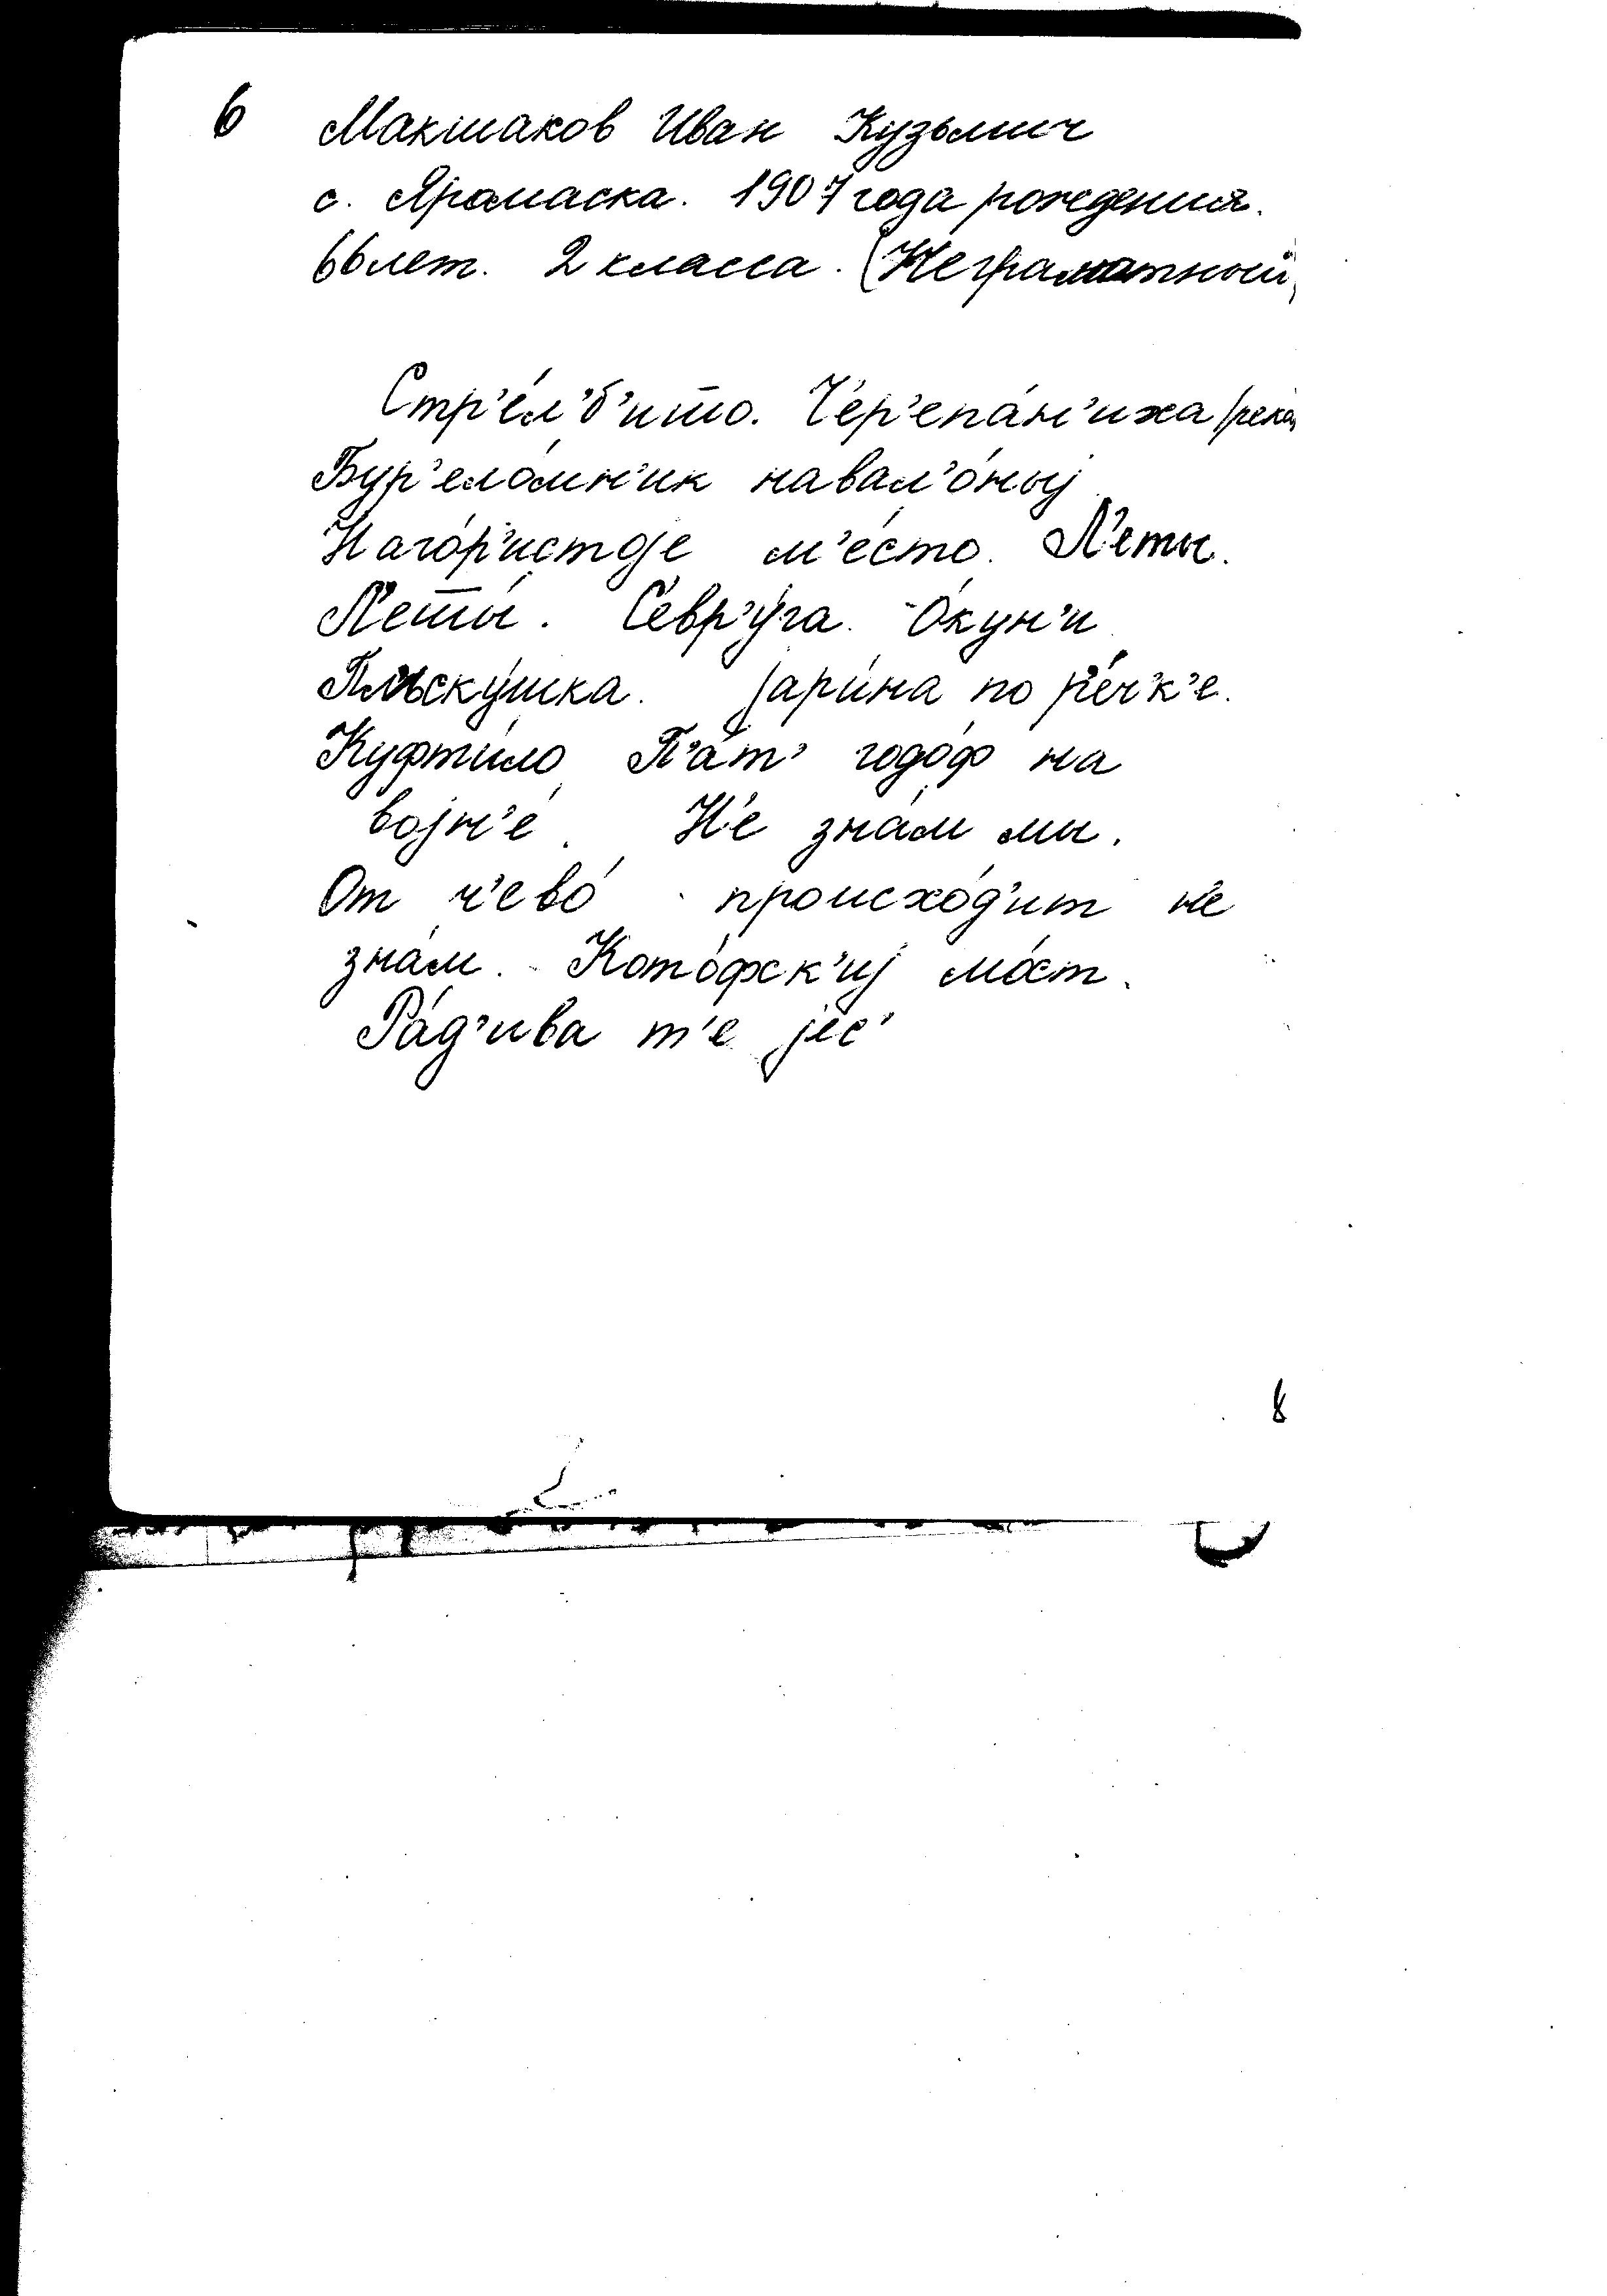 6 Макшаков Иван Кузьмич
с. Яромаска. 1907 года рождения.
66 лет. 2 класса. (Неграмотный)
Стр'е́л'б'ишо. Ч'ер'епа́н'иха (река)
Бур'ело́мн'ик навал'о́ныj
Наго́р'истоjе м'е́сто. Л'еты.
Л'еты́. С'евр'у́га. О́кун'и
jари́на по р'е́ч'к'е.
Куфти́ло П'а́т' годо́ф на
воjн'е́. Н'е зна́м мы.
От ч'ево́ происхо́д'ит н'е
зна́м. Кото́фск'иj мо́ст.
Ра́д'ива т'е jес'
8